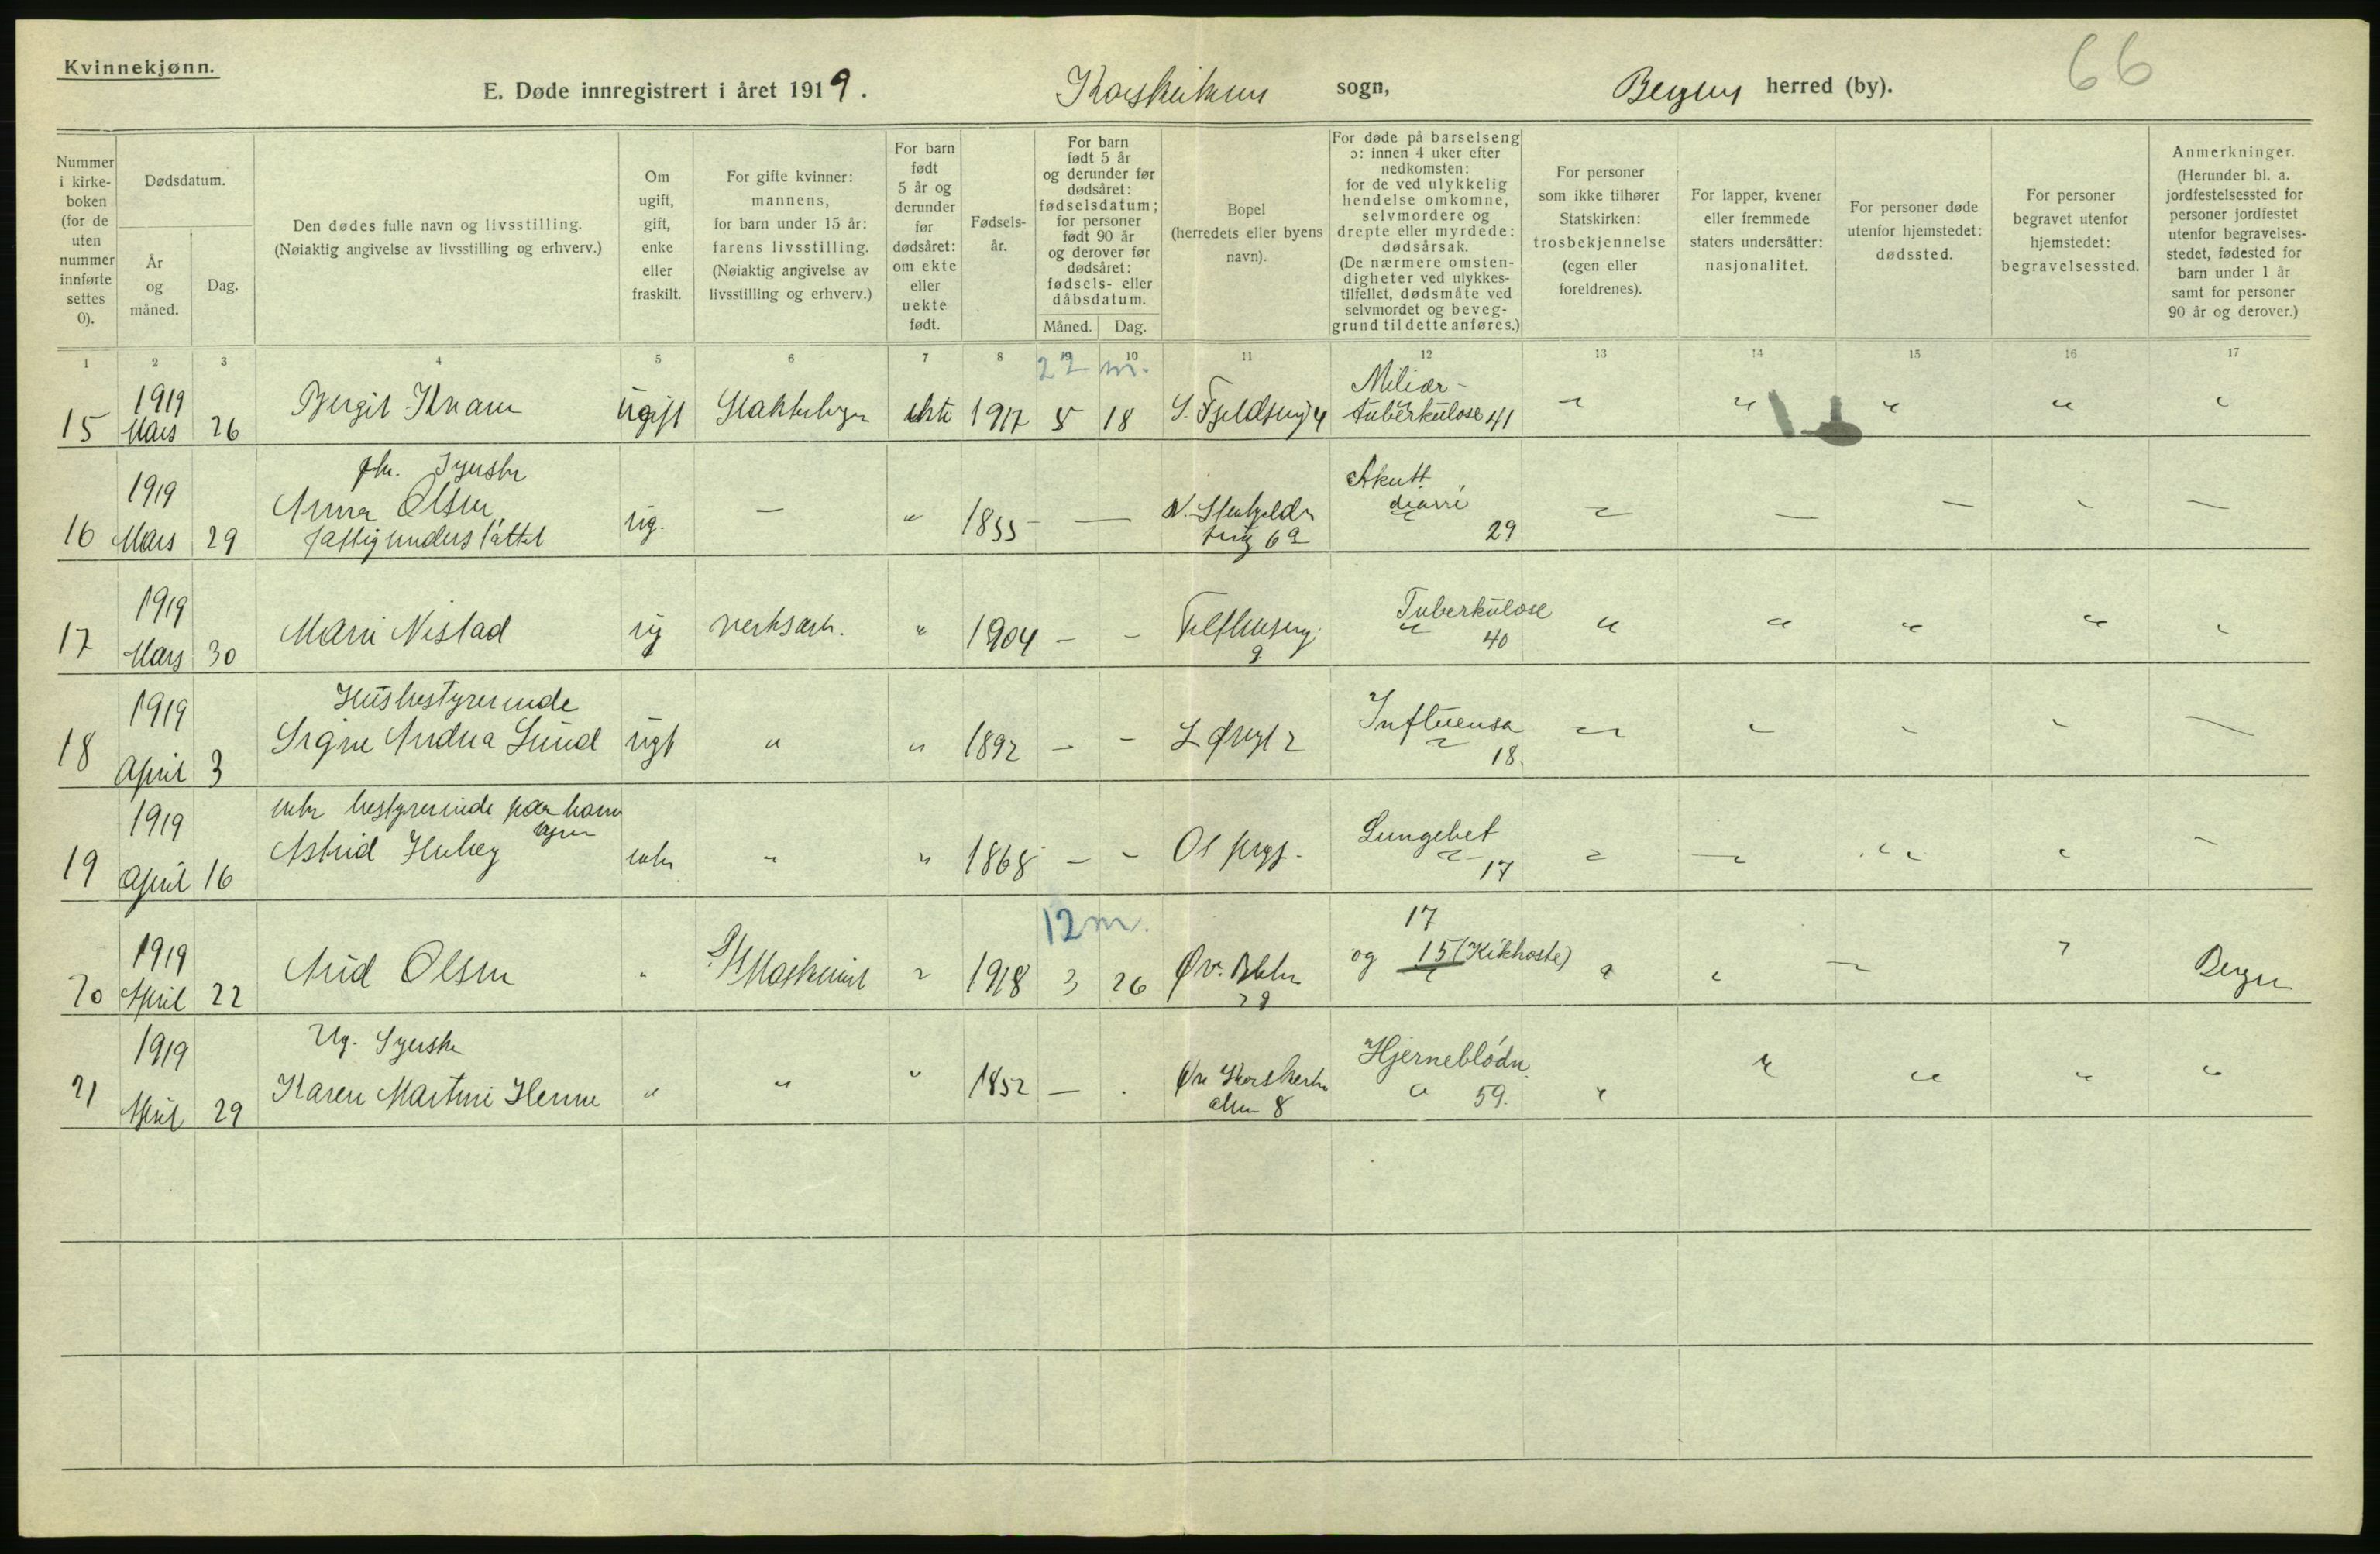 Kvinnekjønn.
66
E. Døde innregistrert i året 1919. Korskirkens sogn, Bergens herred (by).
Nummer i kirkeboken (for de uten nummer innførte settes 0).
Dødsdatum.
År og måned.
Dag.
Den dødes fulle navn og livsstilling.
(Nøiaktig angivelse av livsstilling og erhverv.)
Om ugift, gift, enke eller fraskilt.
For gifte kvinner: mannens, for barn under 15 år: farens livsstilling.
(Nøiaktig angivelse av livsstilling og erhverv.)
For barn født 5 år og derunder før dødsåret: om ekte eller uekte født.
Fødselsår.
For barn født 5 år og derunder før dødsåret: fødselsdatum; for personer født 90 år og derover før dødsåret: fødsels- eller dåbsdatum.
Måned. Dag.
Bopel (herredets eller byens navn).
For døde på barselseng ɔ: innen 4 uker efter nedkomsten: for de ved ulykkelig hendelse omkomne, selvmordere og drepte eller myrdede: dødsårsak.
(De nærmere omstendigheter ved ulykkestilfellet, dødsmåte ved selvmordet og beveggrund til dette anføres.)
For personer som ikke tilhører Statskirken: trosbekjennelse (egen eller foreldrenes).
For lapper, kvener eller fremmede staters undersåtter: nasjonalitet.
For personer døde utenfor hjemstedet: dødssted.
For personer begravet utenfor hjemstedet: begravelsessted.
Anmerkninger.
(Herunder bl. a. jordfestelsessted for personer jordfestet utenfor begravelsesstedet, fødested for barn under 1 år samt for personer 90 år og derover.)
1 2 3 4 5 6 7 8 9 10 11 12 13 14 15 16 17
22 m.
15 1919 Mars 26 ugift ekte 1917 8 18 Miliær-tuberkulose 41
16 1919 Mars 29 Anna Olsen fattigunderstøttet ug. — " 1855 - — Akutt diarré 29
17 1919 Mars 30 Marie Nistad ug " 1904 - - 9 Tuberkulose 40
18 1919 April 3 Husbestyrerinde Signe Andrea Lund ugt " " 1892 - - Influensa 18.
19 1919 April 16 bestyrerinde Astrid enke " " 1868 - - Lungebet 17
12 m.
20 1919 April 22 Olsen " Maskinist " 1918 3 26 Øv. 29 17 og 15 (Kikhoste) Bergen
21 1919 April 29 Ug. Syerske Karen Martine " " " 1852 — Øvre Korskirke alm 8 Hjerneblødn. 59.